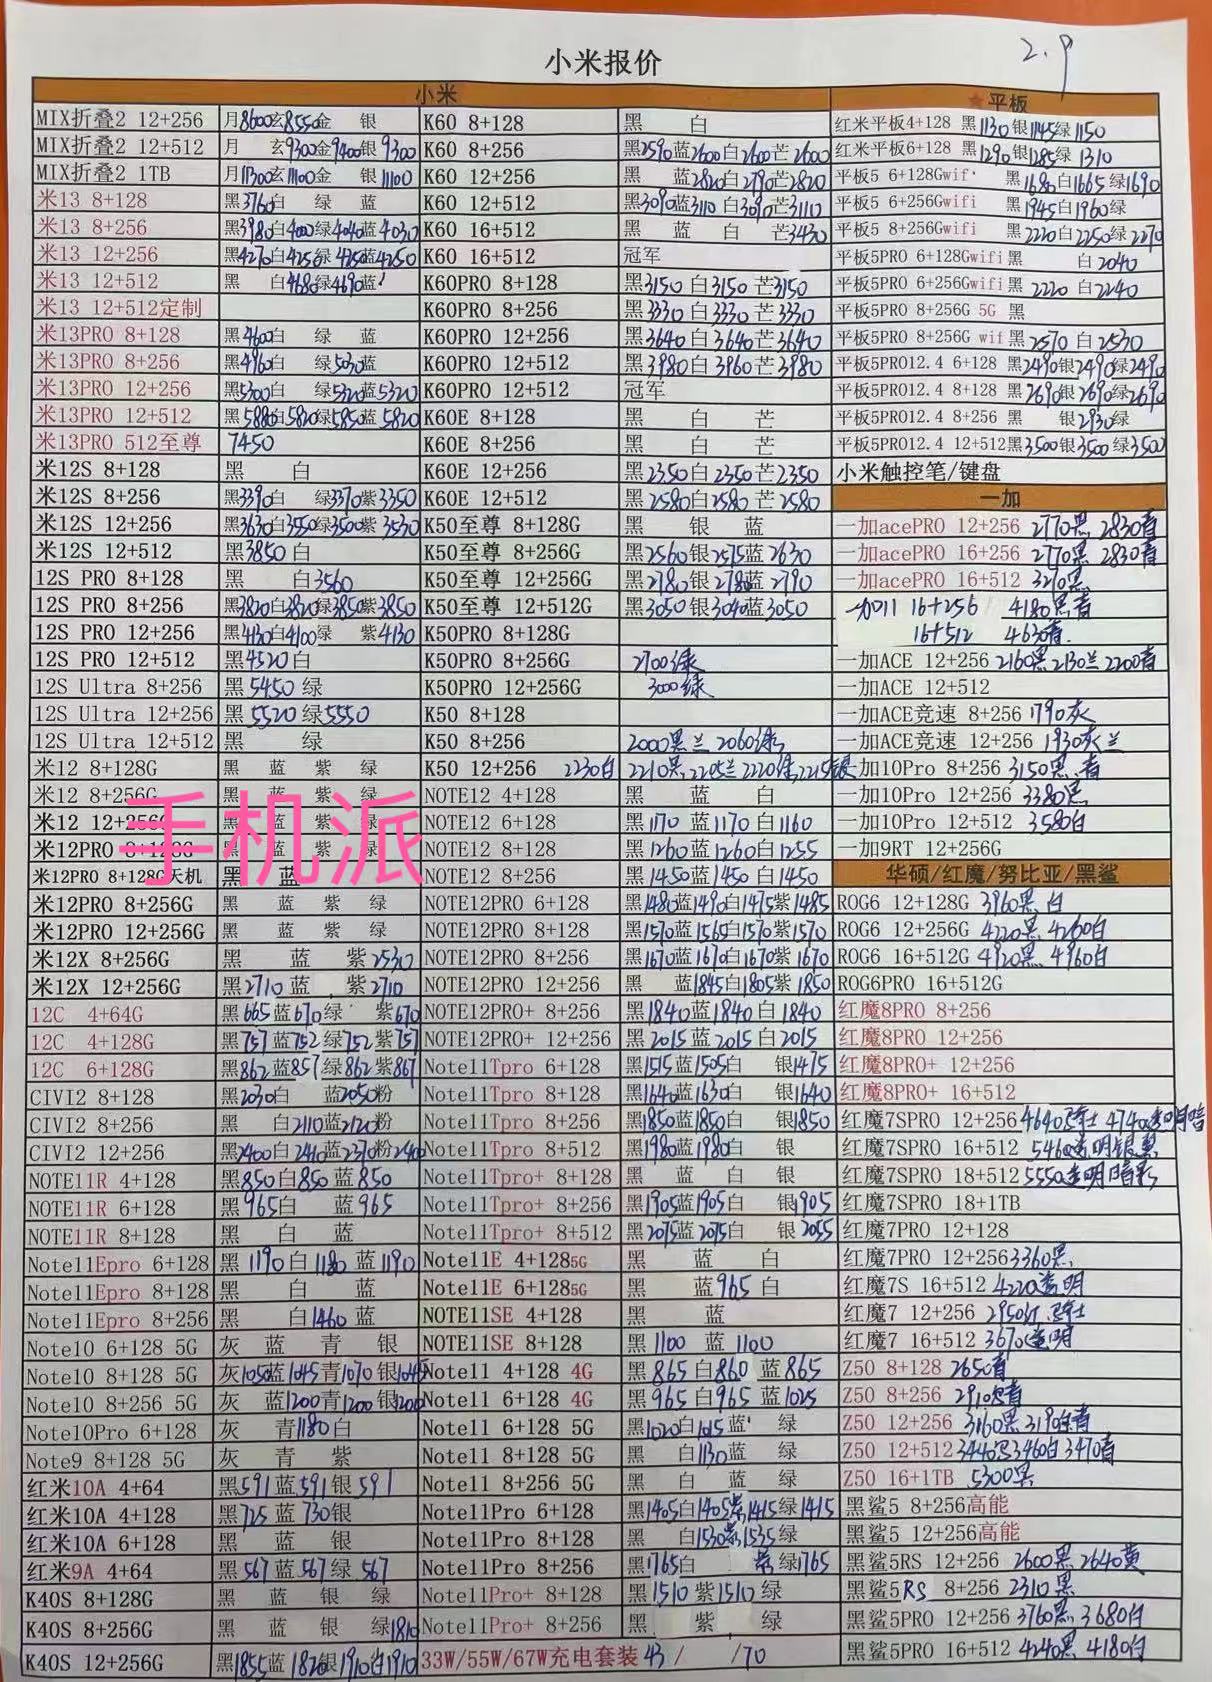 小米报价
2.9
小米
MIX折叠2 12+256 月8600玄8550金 银
MIX折叠2 12+512 月 玄9300金9400银9300
MIX折叠2 1TB 月11300玄11100金 银11100
米13 8+128 黑3760白 绿 蓝
米13 8+256 黑3980白4000绿4040蓝4030
米13 12+256 黑4270白4250绿4250蓝4250
米13 12+512 黑 白4680绿4690蓝
米13 12+512定制
米13PRO 8+128 黑4600白 绿 蓝
米13PRO 8+256 黑4960白 绿5030蓝
米13PRO 12+256 黑5300白 绿5320蓝5320
米13PRO 12+512 黑5880白5820绿5850蓝5820
米13PRO 512至尊 7450
米12S 8+128 黑 白
米12S 8+256 黑3390白 绿3370紫3350
米12S 12+256 黑3630白3550绿3500紫3530
米12S 12+512 黑3850白
12S PRO 8+128 黑 白3560
12S PRO 8+256 黑3820白3820绿3850紫3850
12S PRO 12+256 黑4130白4100绿 紫4130
12S PRO 12+512 黑4520白
12S Ultra 8+256 黑5450绿
12S Ultra 12+256 黑5520绿5550
12S Ultra 12+512 黑 绿
米12 8+128G 黑 蓝 紫 绿
米12 8+256G 黑 蓝 紫 绿
米12 12+256G 黑 蓝 紫 绿
米12PRO 8+128G 黑 蓝 紫 绿
米12PRO 8+128G天机 黑 蓝
手机派
米12PRO 8+256G 黑 蓝 紫 绿
米12PRO 12+256G 黑 蓝 紫 绿
米12X 8+256G 黑 蓝 紫2530
米12X 12+256G 黑2710蓝 紫2710
12C 4+64G 黑665蓝670绿 紫670
12C 4+128G 黑757蓝752绿752紫757
12C 6+128G 黑862蓝857绿862紫867
CIVI2 8+128 黑2030白 蓝2050粉
CIVI2 8+256 黑 白2110蓝2120粉
CIVI2 12+256 黑2400白2410蓝2370粉2400
NOTE11R 4+128 黑850白850蓝850
NOTE11R 6+128 黑965白 蓝965
NOTE11R 8+128 黑 白 蓝
Note11Epro 6+128 黑1190白1180蓝1190
Note11Epro 8+128 黑 白 蓝
Note11Epro 8+256 黑 白1460蓝
Note10 6+128 5G 灰 蓝 青 银
Note10 8+128 5G 灰1050蓝1045青1070银1045
Note10 8+256 5G 灰 蓝1200青1200银1200
Note10Pro 6+128 灰 青1180白
Note9 8+128 5G 灰 青 紫
红米10A 4+64 黑591蓝591银591
红米10A 4+128 黑725蓝730银
红米10A 6+128 黑 蓝 银
红米9A 4+64 黑567蓝567绿567
K40S 8+128G 黑 蓝 银 绿
K40S 8+256G 黑 蓝 银 绿1810
K40S 12+256G 黑1855蓝1820银1910白1910
K60 8+128 黑 白
K60 8+256 黑2590蓝2600白2600芒2600
K60 12+256 黑 蓝2820白2790芒2820
K60 12+512 黑3090蓝3110白3090芒3110
K60 16+512 黑 蓝 白 芒3430
K60 16+512 冠军
K60PRO 8+128 黑3150白3150芒3150
K60PRO 8+256 黑3330白3330芒3330
K60PRO 12+256 黑3640白3640芒3640
K60PRO 12+512 黑3980白3960芒3980
K60PRO 12+512 冠军
K60E 8+128 黑 白 芒
K60E 8+256 黑 白 芒
K60E 12+256 黑2350白2350芒2350
K60E 12+512 黑2580白2580芒2580
K50至尊 8+128G 黑 银 蓝
K50至尊 8+256G 黑2560银2575蓝2630
K50至尊 12+256G 黑2780银2780蓝2790
K50至尊 12+512G 黑3050银3040蓝3050
K50PRO 8+128G
K50PRO 8+256G 2700绿
K50PRO 12+256G 3000绿
K50 8+128
K50 8+256 2000黑兰 2060绿
K50 12+256 2230白 2210黑,2205兰2220绿,2215银
NOTE12 4+128 黑 蓝 白
NOTE12 6+128 黑1170蓝1170白1160
NOTE12 8+128 黑1260蓝1260白1255
NOTE12 8+256 黑1450蓝1450白1450
NOTE12PRO 6+128 黑1480蓝1490白1475紫1485
NOTE12PRO 8+128 黑1570蓝1565白1570紫1570
NOTE12PRO 8+256 黑1670蓝1670白1670紫1670
NOTE12PRO 12+256 黑 蓝1845白1805紫1850
NOTE12PRO+ 8+256 黑1840蓝1840白1840
NOTE12PRO+ 12+256 黑2015蓝2015白2015
Note11Tpro 6+128 黑1515蓝1505白 银1475
Note11Tpro 8+128 黑1640蓝1630白 银1640
Note11Tpro 8+256 黑1850蓝1850白 银1850
Note11Tpro 8+512 黑1980蓝1980白 银
Note11Tpro+ 8+128 黑 蓝 白 银
Note11Tpro+ 8+256 黑1905蓝1905白 银1905
Note11Tpro+ 8+512 黑2075蓝2075白 银2055
Note11E 4+1285G 黑 蓝 白
Note11E 6+1285G 黑 蓝965白
NOTE11SE 4+128 黑 蓝
NOTE11SE 8+128 黑1100 蓝1100
Note11 4+128 4G 黑865白860蓝865
Note11 6+128 4G 黑965白965蓝1025
Note11 6+128 5G 黑1020白1015蓝 绿
Note11 8+128 5G 黑 白1130蓝 绿
Note11 8+256 5G 黑 白 蓝 绿
Note11Pro 6+128 黑1405白1405紫1415绿1415
Note11Pro 8+128 黑 白1530紫1535绿
Note11Pro 8+256 黑1765白 紫 绿1765
Note11Pro+ 8+128 黑1510紫1510绿
Note11Pro+ 8+256 黑 紫 绿
33W/55W/67W充电套装 43/ /70
★平板
红米平板4+128 黑1130银1145绿1150
红米平板6+128 黑1290银1285绿1310
平板5 6+128Gwif 黑1680白1665绿1690
平板5 6+256Gwifi 黑1945白1960绿
平板5 8+256Gwifi 黑2220白2250绿2270
平板5PRO 6+128Gwifi黑 白2040
平板5PRO 6+256Gwifi黑2220 白2240
平板5PRO 8+256G 5G 黑
平板5PRO 8+256G wif 黑2570白2530
平板5PRO12.4 6+128 黑2490银2490绿2490
平板5PRO12.4 8+128 黑2690银2690绿2690
平板5PRO12.4 8+256 黑 银2930绿
平板5PRO12.4 12+512黑3500银3500绿3500
小米触控笔/键盘
一加
一加acePRO 12+256 2770黑 2830青
一加acePRO 16+256 2770黑 2830青
一加acePRO 16+512 3210黑
一加11 16+256 4180黑青
16+512 4630青
一加ACE 12+256 2160黑2130兰2200青
一加ACE 12+512
一加ACE竞速 8+256 1790灰
一加ACE竞速 12+256 1930灰兰
一加10Pro 8+256 3150黑.青
一加10Pro 12+256 3380黑
一加10Pro 12+512 3580白
一加9RT 12+256G
华硕/红魔/努比亚/黑鲨
ROG6 12+128G 3960黑 白
ROG6 12+256G 4220黑 4260白
ROG6 16+512G 4920黑 4960白
ROG6PRO 16+512G
红魔8PRO 8+256
红魔8PRO 12+256
红魔8PRO+ 12+256
红魔8PRO+ 16+512
红魔7SPRO 12+256 4640骑士 4740透明暗
红魔7SPRO 16+512 5460透明银黑
红魔7SPRO 18+512 5550透明暗彩
红魔7SPRO 18+1TB
红魔7PRO 12+128
红魔7PRO 12+256 3360黑
红魔7S 16+512 4220透明
红魔7 12+256 2950红.骑士
红魔7 16+512 3670透明
Z50 8+128 2650青
Z50 8+256 2910青
Z50 12+256 3160黑3190青
Z50 12+512 3440黑3460白3470青
Z50 16+1TB 5300黑
黑鲨5 8+256高能
黑鲨5 12+256高能
黑鲨5RS 12+256 2600黑2640黄
黑鲨5RS 8+256 2310黑
黑鲨5PRO 12+256 3760黑 3680白
黑鲨5PRO 16+512 4240黑 4180白